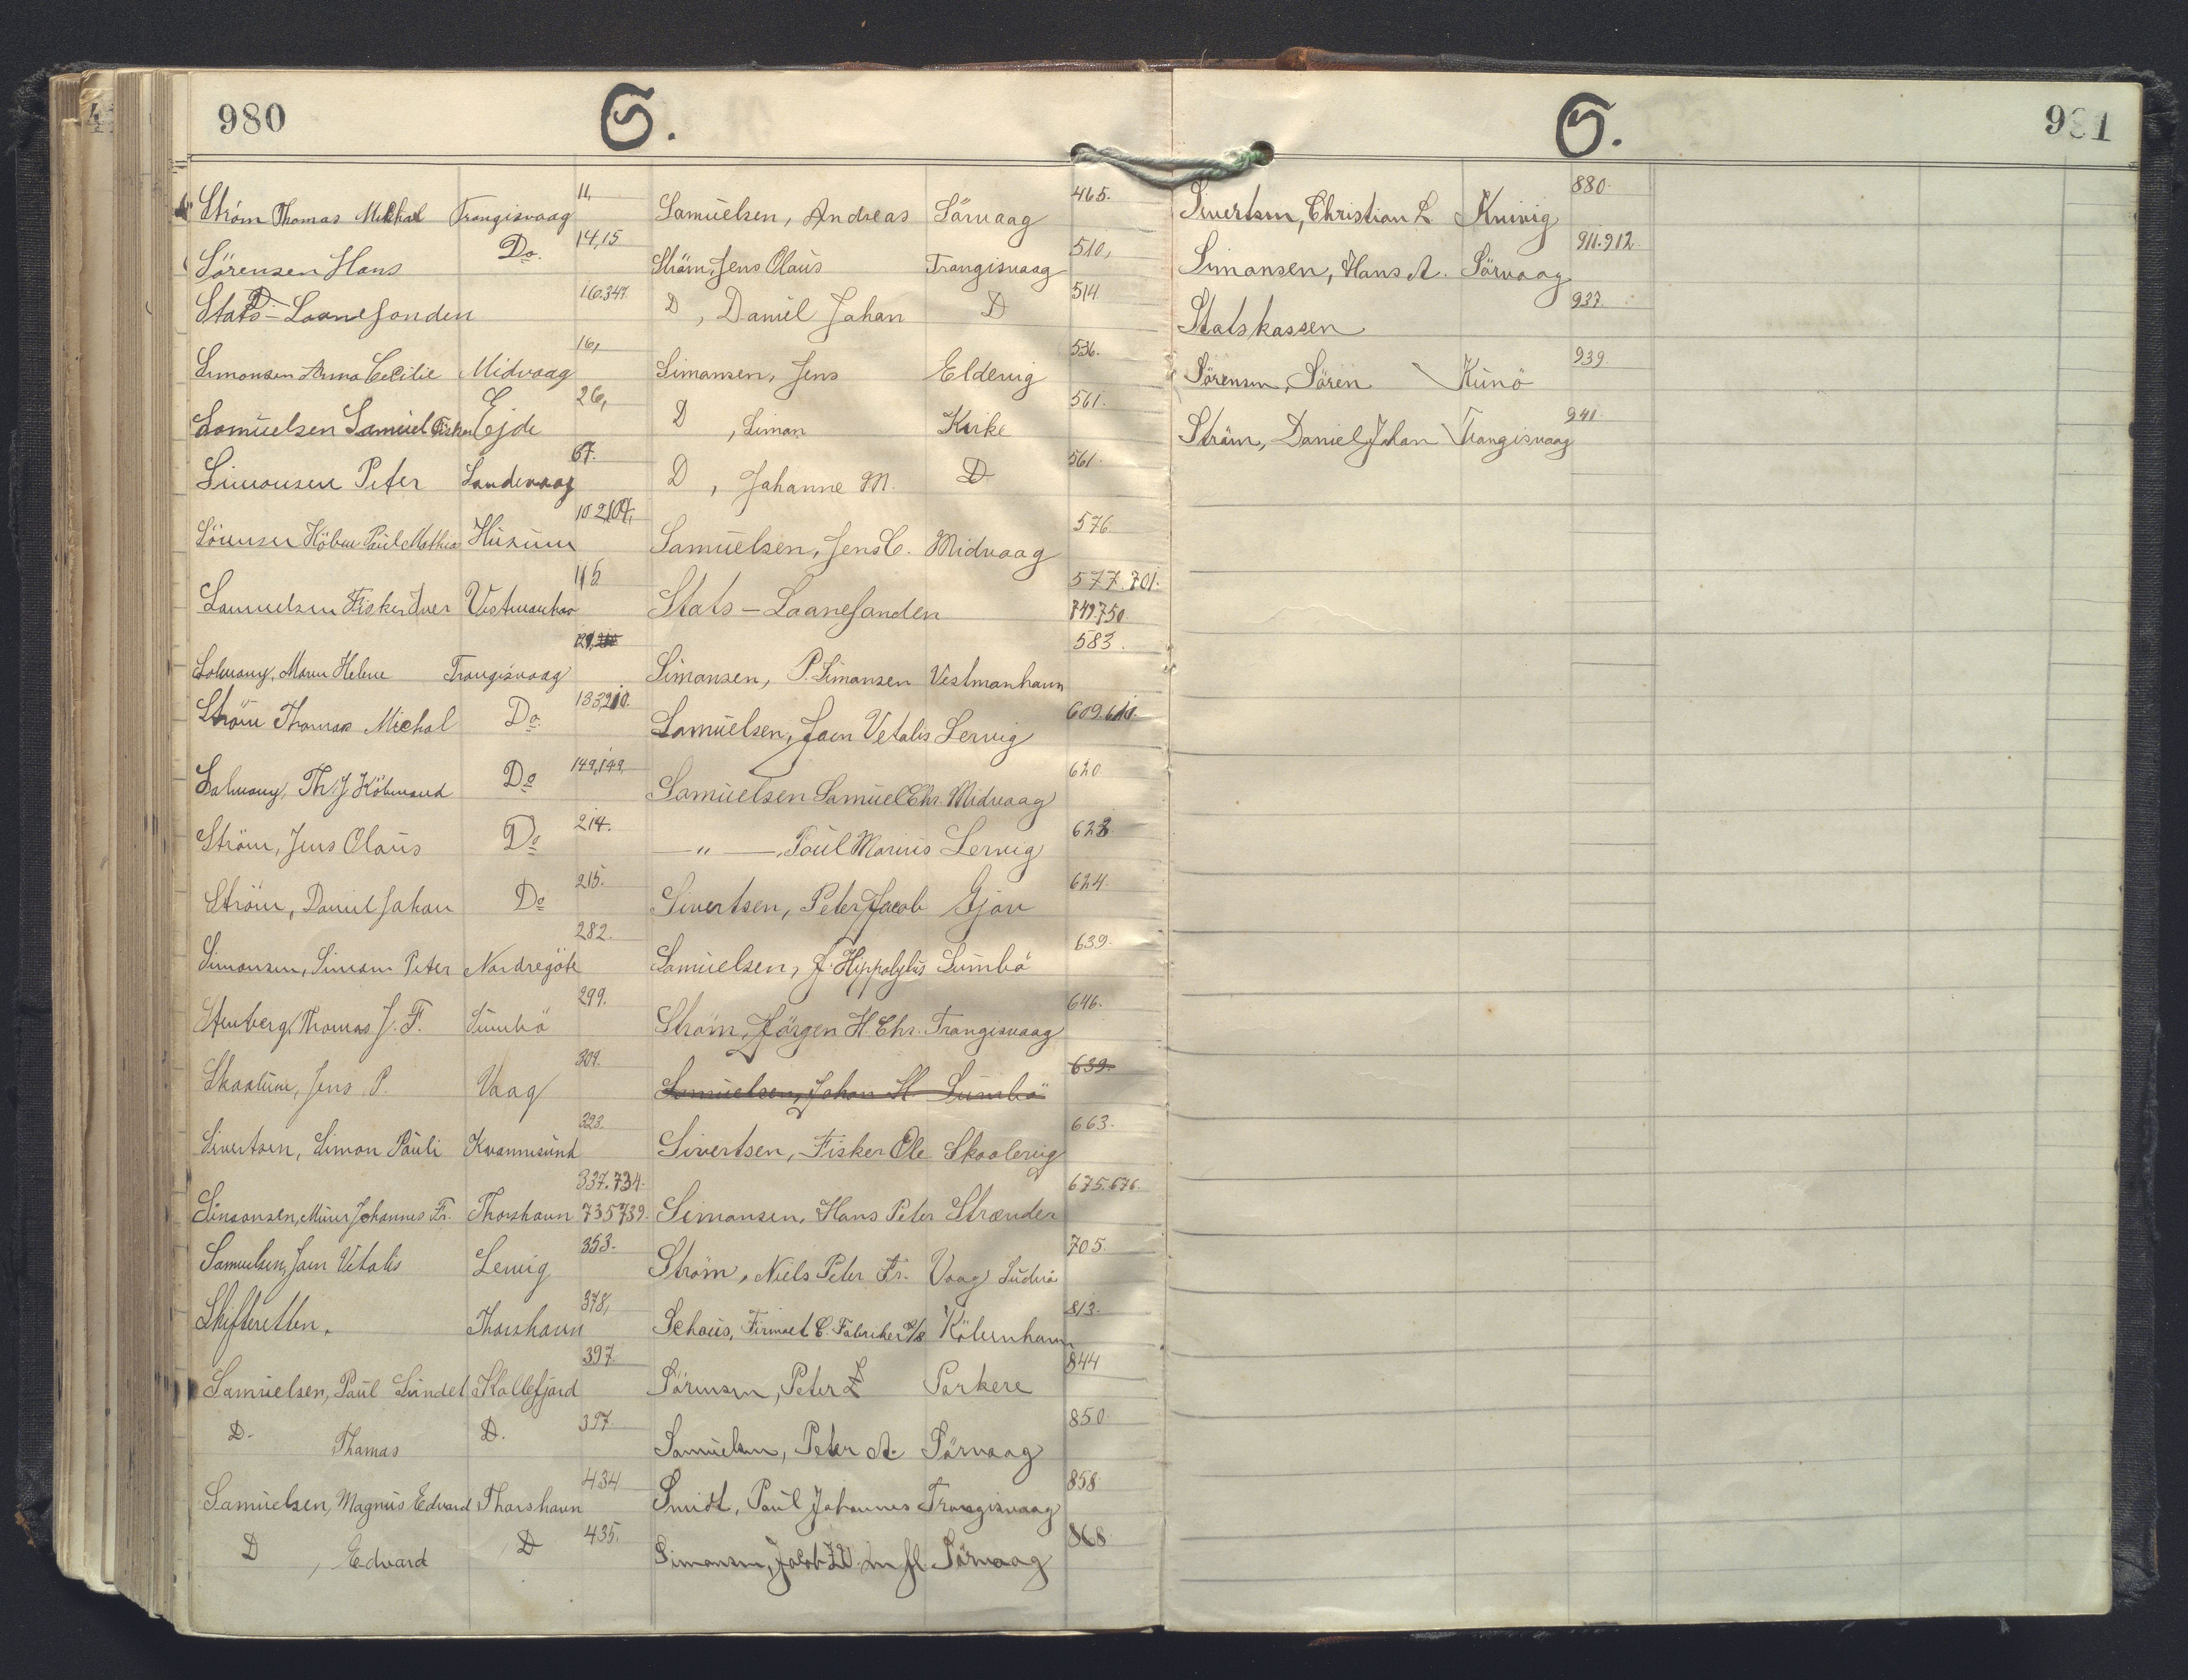 980
S.
Ström Thomas Michal Trangisvaag 11,
Sörensen Hans Do. 14,15
Stats-Laanefonden 16.347.
Simonsen Anna Cecilie Midvaag 16,
Samuelsen Samuel Fisker Ejde 26,
Simonsen Peter Sandevaag 67.
Sörensen Köbm. Paul Mathias Husum 102,104,
Samuelsen Fisker Iver Vestmanhavn 115
Maren Helene Trangisvaag 129,
Ström Thomas Michal Do. 133,210.
Th. J. Köbmand Do 149,149,
Ström, Jens Olaus Do 214.
Ström, Daniel Johan Do 215.
Simonsen, Simon Peter Nordregöte 282.
Stenberg, Thomas J. F. Sumbö 299.
Skaalum, Jens P. Vaag 304.
Sivertsen, Simon Pauli Kvannesund 323.
Simonsen, Murer Johannes Fr. Thorshavn 337.734. 735739.
Samuelsen, Joen Vitalis Lervig 353.
Skifteretten. Thorshavn 378,
Samuelsen, Paul Sundet Kollefjord 397.
D. Thomas D. 397.
Samuelsen, Magnus Edvard Thorshavn 434
D , Edvard D 435.
Samuelsen, Andreas Sörvaag 465.
Ström, Jens Olaus Trangisvaag 510,
D , Daniel Johan D 514
Simonsen, Jens Eldevig 536.
D , Simon Kirke 561.
D , Johanne M. D 561.
Samuelsen, Jens C. Midvaag 576
Stats-Laanefonden 577.701. 749.750.
Simonsen, P. Simonsen Vestmanhavn 583.
Samuelsen, Joen Vetalis Lervig 609.610.
Samuelsen Samuel Chr. Midvaag 620
—"—, Poul Marius Lervig 623
Sivertsen, Peter Jacob Gjov 624.
Samuelsen, J. Hippolytus Sumbö 639.
Ström, Jörgen H. Chr. Trangisvaag 646.
Samuelsen, Johan H. Sumbö 639.
Sivertsen, Fisker Ole Skaalevig 663.
Simonsen, Hans Peter Strænder 675.676.
Ström, Niels Peter Fr. Vaag Suderö 705.
Schous, Firmaet C. Fabriker A/S Köbenhavn 813.
Sörensen, Peter Porkere 844
Samuelsen, Peter A. Sörvaag 850.
Smidt, Paul Johannes Trangisvaag 858.
Simonsen, Jacob m fl. Sörvaag 868
S.
981
Sivertsen, Christian L Knivig 880.
Simonsen, Hans A. Sörvaag 911.912.
Statskassen 937.
Sörensen, Sören Kunö 939.
Ström, Daniel Johan Trangisvaag 941.